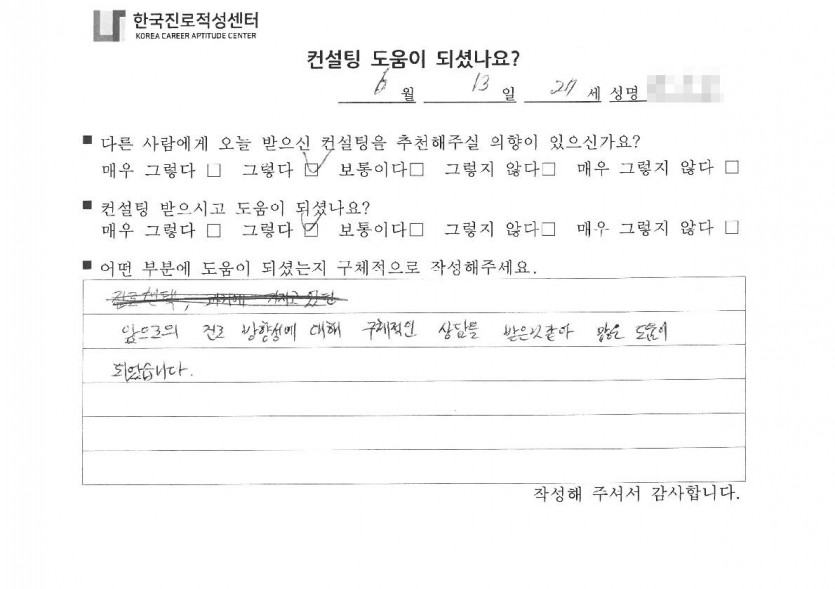 한국진로적성센터
KOREA CAREER APTITUDE CENTER
컨설팅 도움이 되셨나요?
6월 13일 27세 성명
■ 다른 사람에게 오늘 받으신 컨설팅을 추천해주실 의향이 있으신가요?
매우 그렇다 □ 그렇다 ☑ 보통이다□ 그렇지 않다□ 매우 그렇지 않다 □
■ 컨설팅 받으시고 도움이 되셨나요?
매우 그렇다 □ 그렇다 ☑ 보통이다□ 그렇지 않다□ 매우 그렇지 않다 □
■ 어떤 부분에 도움이 되셨는지 구체적으로 작성해주세요.
진로선택,
앞으로의 진로 방향성에 대해 구체적인 상담을 받은것같아 많은 도움이
되었습니다.
작성해 주셔서 감사합니다.